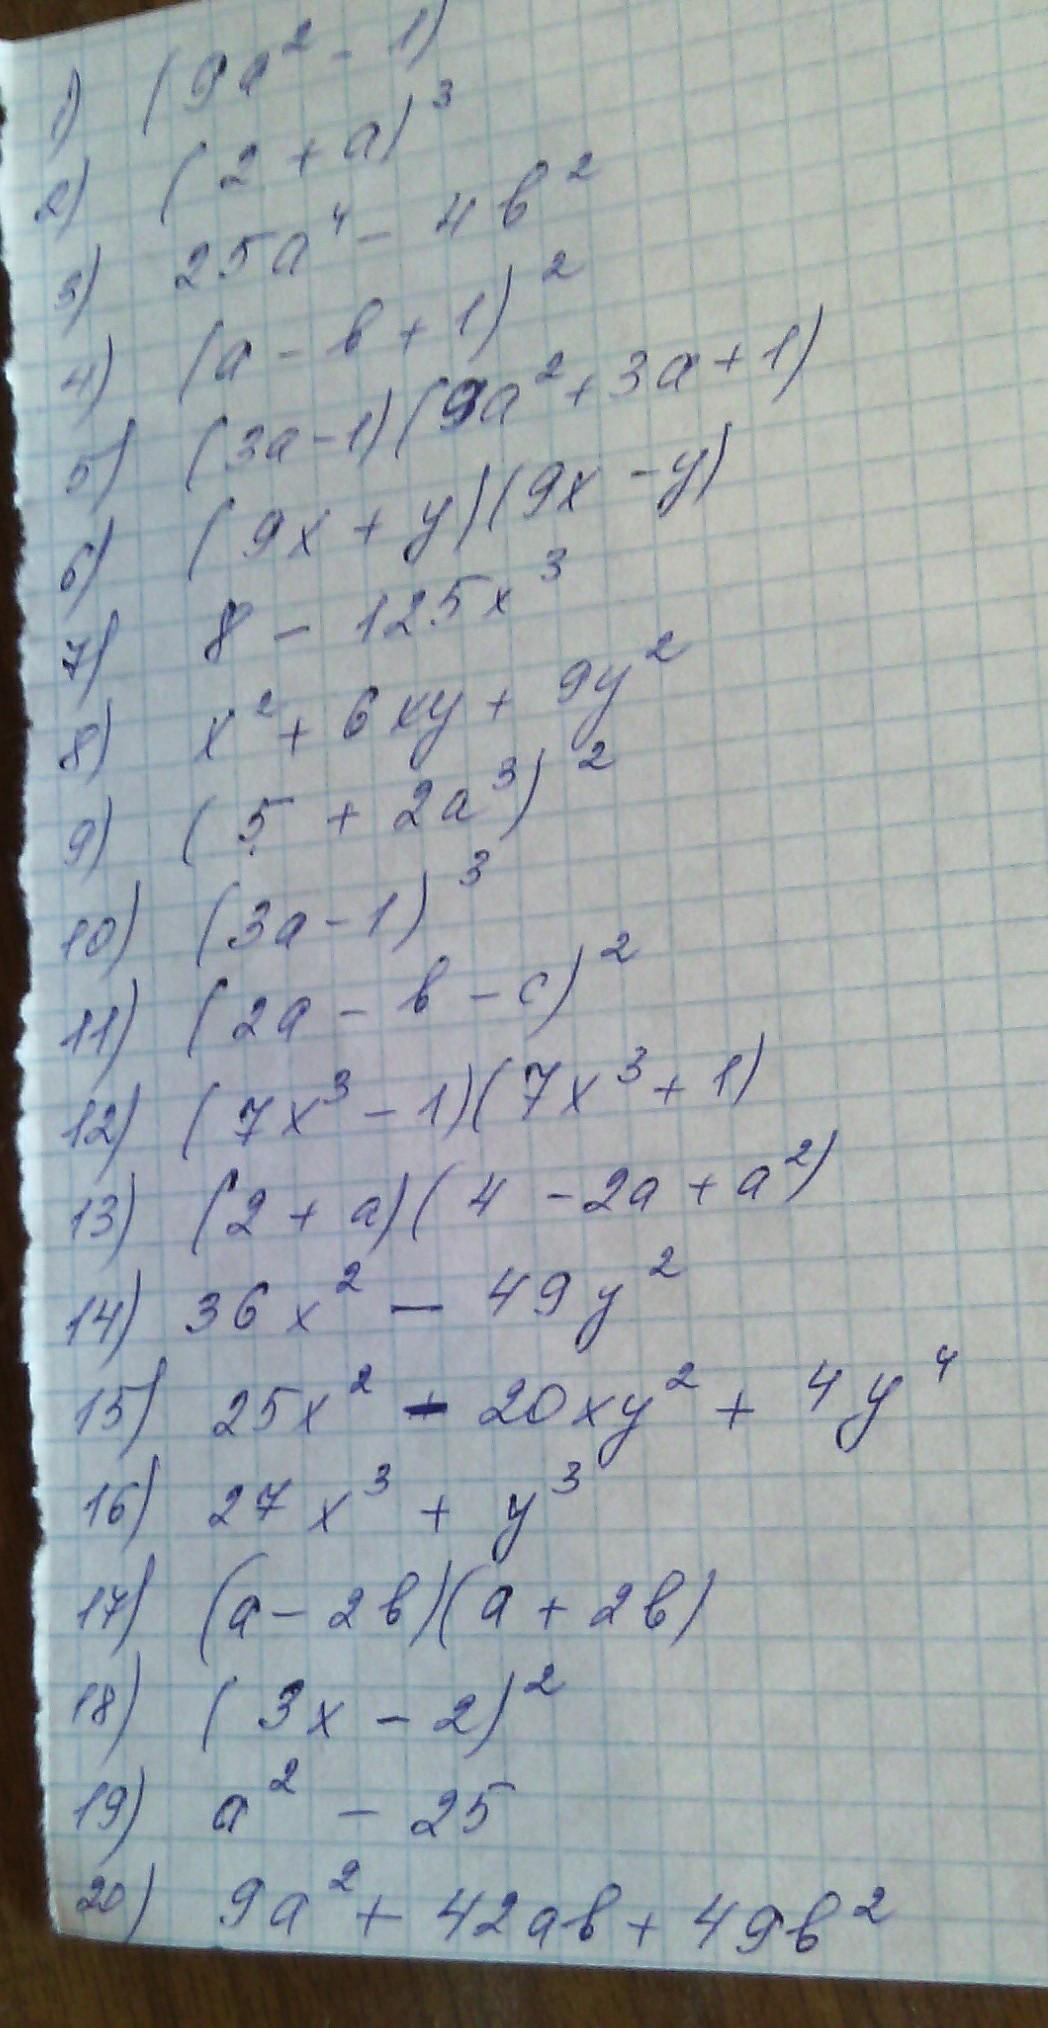 1) (9a² - 1)
2) (2 + a)³
3) 25a⁴ - 4b²
4) (a - b + 1)²
5) (3a - 1)(9a² + 3a + 1)
6) (9x + y)(9x - y)
7) 8 - 125x³
8) x² + 6xy + 9y²
9) (5 + 2a³)²
10) (3a - 1)³
11) (2a - b - c)²
12) (7x³ - 1)(7x³ + 1)
13) (2 + a)(4 - 2a + a²)
14) 36x² - 49y²
15) 25x² - 20xy² + 4y⁴
16) 27x³ + y³
17) (a - 2b)(a + 2b)
18) (3x - 2)²
19) a² - 25
20) 9a² + 42ab + 49b²